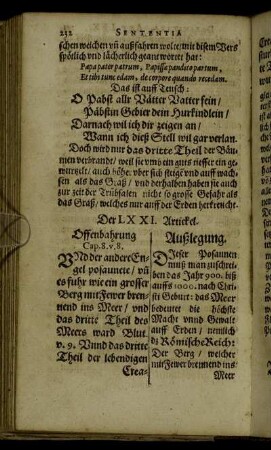 212 SENTENTIA
schen weichen vñ außfahren wolte/ mit disem Vers
spötlich vnd lächerlich geantwortet hat:
Papa pater patrum, Papissa pandito partum,
Et tibi tunc edam, de corpore quando recedam.
Das ist auff Teusch:
O Pabst aller Vätter Vatter fein/
Päbstin Gebier dein Hurkindlein/
Darnach wil ich dir zeigen an/
Wann ich dieß Stell wil gar verlan.
Doch wird nur das dritte Theil der Bäu-
men verbrandt/ weil sie vmb ein guts tieffer ein ge-
wurzelt/ auch höher vber sich steigt vnd auff wach-
sen als das Graß/ vnd derhalben haben sie auch
zur zeit der Trübsalen nicht so grosse Gefahr als
das Graß/ welches nur auff der Erden herkreucht.
Der LXXI. Artickel.
Offenbahrung
Cap. 8. v. 8.
VNd der andere En-
gel posaunete/ vñ
es fuhr wie ein grosser
Berg mit Fewer bren-
nend ins Meer/ vnd
das dritte Theil des
Meers ward Blut.
v. 9. Vnnd das dritte
Theil der lebendigen
Crea-
Außlegung.
DIeser Posaunen
muß man zuschrei-
ben das Jahr 900. biß
auffs 1000. nach Chri-
sti Geburt: das Meer
bedeutet die höchste
Macht vnnd Gewalt
auff Erden/ nemlich
dz Römische Reich:
Der Berg/ welcher
mit Fewer brennend ins
Meer